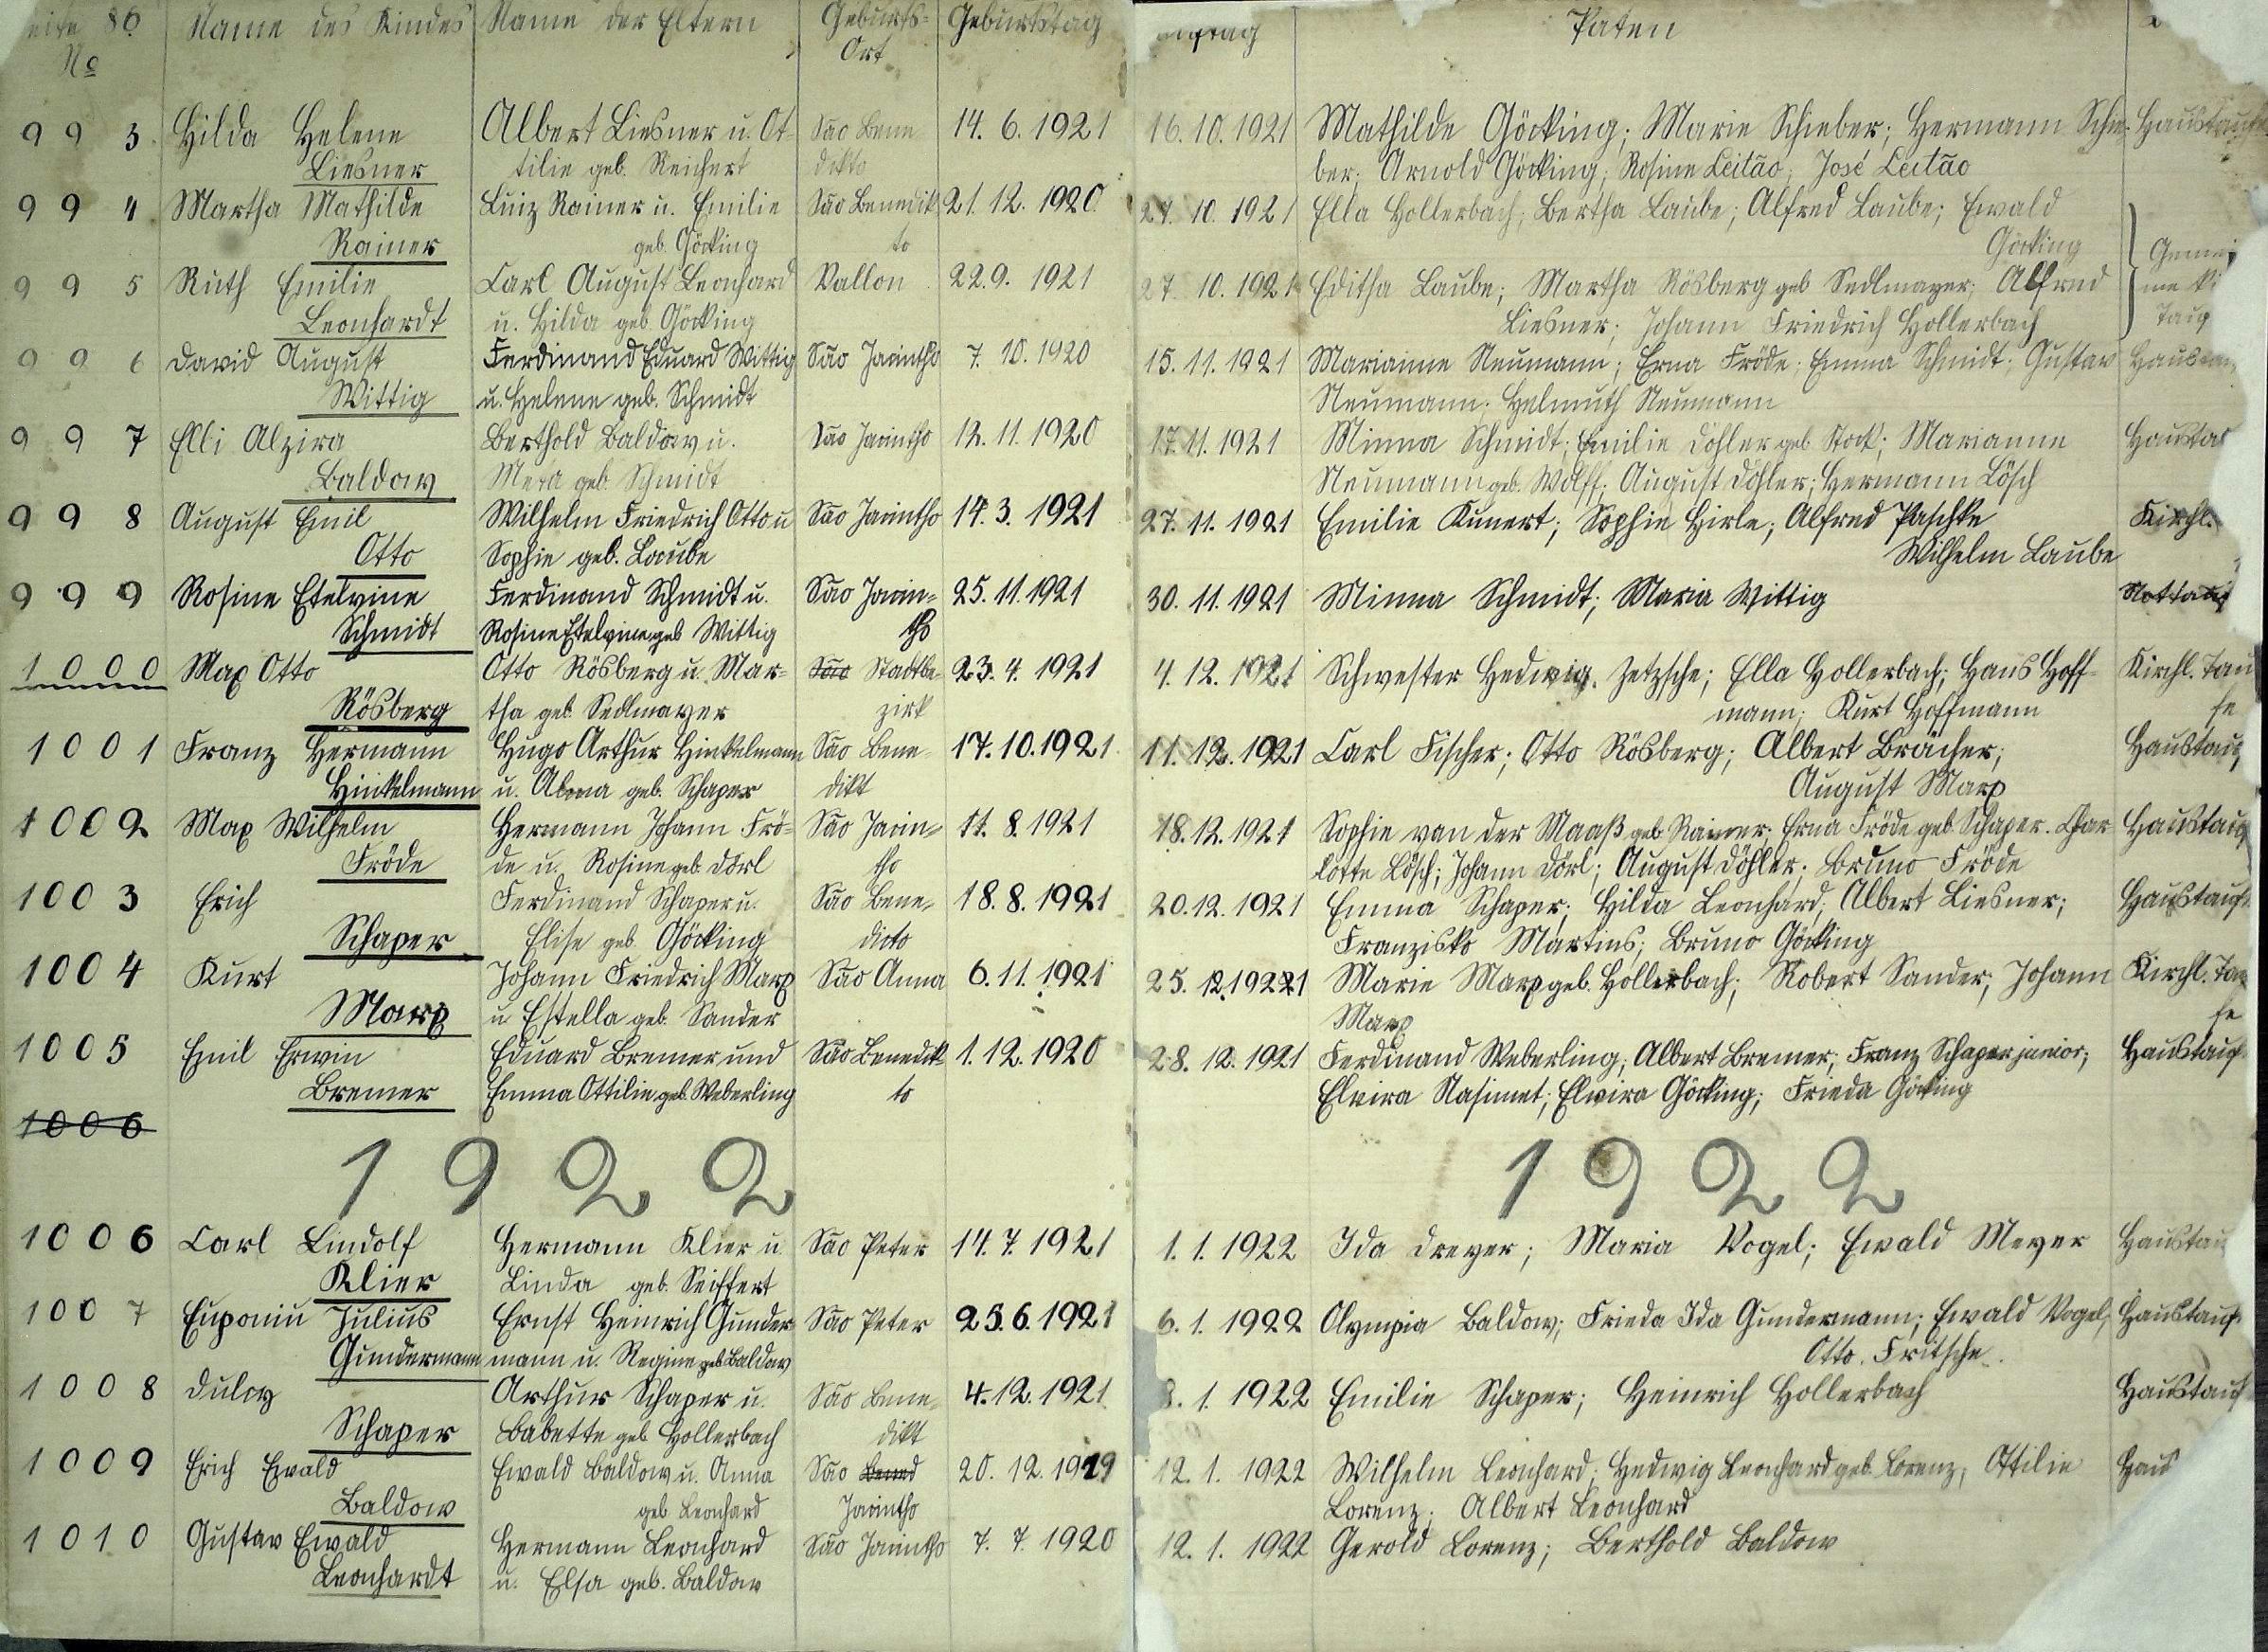 Seite 86 Name des Kindes Name der Eltern Geburts- Geburtstag Paten
No Ort
993 Hilda Helene Albert Liesner u. Ot- São Bene 14. 6. 1921 16. 10. 1921 Mathilde Göcking; Marie Schieber; Hermann Schie- Haustaufe
Liesner tilie geb. Reichert dikto ber; Arnold Göcking; Rosine Leitão; José Leitão
994 Martha Mathilde Luiz Rainer u. Emilie São Benedik 21. 12. 1920 27. 10. 1921 Ella Hollerbach; Bertha Laube; Alfred Laube; Ewald
Rainer geb. Göcking to Göcking
995 Ruth Emilie Carl August Leonhard Vallon 22. 9. 1921 27. 10. 1921 Editha Laube; Martha Rösberg geb Sedlmayer; Alfred
Leonhardt u. Hilda geb. Göcking Liesner; Johann Friedrich Hollerbach
996 David August Ferdinand Eduard Wittig São Jacintho 7. 10. 1920 15. 11. 1921 Marianne Neumann; Erna Fröde; Emma Schmidt; Gustav Haustau
Wittig u. Helene geb. Schmidt Neumann; Helmuth Neumann
997 Elli Alzira Berthold Baldow u. São Jacintho 12. 11. 1920 17. 11. 1921 Minna Schmidt; Emilie Döhler geb. Stock; Marianne Haustau
Baldow Meta geb. Schmidt Neumann geb. Wolff; August Döhler; Hermann Lösch
998 August Emil Wilhelm Friedrich Otto u São Jacintho 14. 3. 1921 27. 11. 1921 Emilie Kunert; Sophie Hirle; Alfred Paschke Kirchl.
Otto Sophie geb. Laube Wilhelm Laube
999 Rosine Etelvine Ferdinand Schmidt u. São Jacin- 25. 11. 1921 30. 11. 1921 Minna Schmidt; Maria Wittig Nottauf
Schmidt Rosine Etelvine geb Wittig tho
1000 Max Otto Otto Rösberg u. Mar- São Stadtbe- 23. 4. 1921 4. 12. 1921 Schwester Hedwig Zetzsche; Ella Hollerbach; Hans Hoff- Kirchl. Tau
Rösberg tha geb. Sedlmayer zirk mann; Kurt Hoffmann fe
1001 Franz Hermann Hugo Arthur Hinkelmann São Bene- 17. 10. 1921 11. 12. 1921 Carl Fischer; Otto Rösberg; Albert Brächer; Haustauf
Hinkelmann u. Alma geb. Schaper dikt August Marx
1002 Max Wilhelm Hermann Johann Frö- São Jacin- 11. 8. 1921 18. 12. 1921 Sophie van der Maaß geb. Rainer; Erna Fröde geb. Schaper. Char Haustauf
Fröde de u. Rosine geb. Dörl tho lotte Lösch; Johann Dörl; August Döhler; Bruno Fröde
1003 Erich Ferdinand Schaper u. São Bene- 18. 8. 1921 20. 12. 1921 Emma Schaper; Hilda Leonhard; Albert Liesner; Haustauf
Schaper Elise geb. Göcking dicto Franzisko Martins; Bruno Göcking
1004 Kurt Johann Friedrich Marx São Anna 6. 11. 1921 25. 12. 1921 Marie Marx geb. Hollerbach; Robert Sander; Johann Kirchl. Tau
Marx u Estella geb. Sander Marx fe
1005 Emil Erwin Eduard Bremer und São Benedik- 1. 12. 1920 28. 12. 1921 Ferdinand Weberling; Albert Bremer; Franz Schaper junior; Haustauf
Bremer Emma Ottilie geb. Weberling to Elvira Nasimet; Elvira Göcking; Frieda Göcking
1006
1922 1922
1006 Carl Lindolf Hermann Klier u São Peter 14. 7. 1921 1. 1. 1922 Ida Dreyer; Maria Vogel; Ewald Meyer Haustau
Klier Linda geb. Seiffert
1007 Julius Ernst Heinrich Gunder São Peter 25. 6. 1921 6. 1. 1922 Olympia Baldow; Frieda Ida Gundermann; Ewald Vogel; Haustauf
Gundermann mann u. Regine geb Baldow Otto Fritsche
1008 Dulcy Arthur Schaper u. São Bene- 4. 12. 1921 8. 1. 1922 Emilie Schaper; Heinrich Hollerbach Haustauf
Schaper Babette geb. Hollerbach dikt
1009 Erich Ewald Ewald Baldow u. Anna São Bened 20. 12. 1919 12. 1. 1922 Wilhelm Leonhard; Hedwig Leonhard geb. Lorenz; Ottilie Haus
Baldow geb Leonhard Jacintho Lorenz; Albert Leonhard
1010 Gustav Ewald Hermann Leonhard São Jacintho 7. 7. 1920 12. 1. 1922 Gerold Lorenz; Berthold Baldow
Leonhardt u. Elsa geb. Baldow